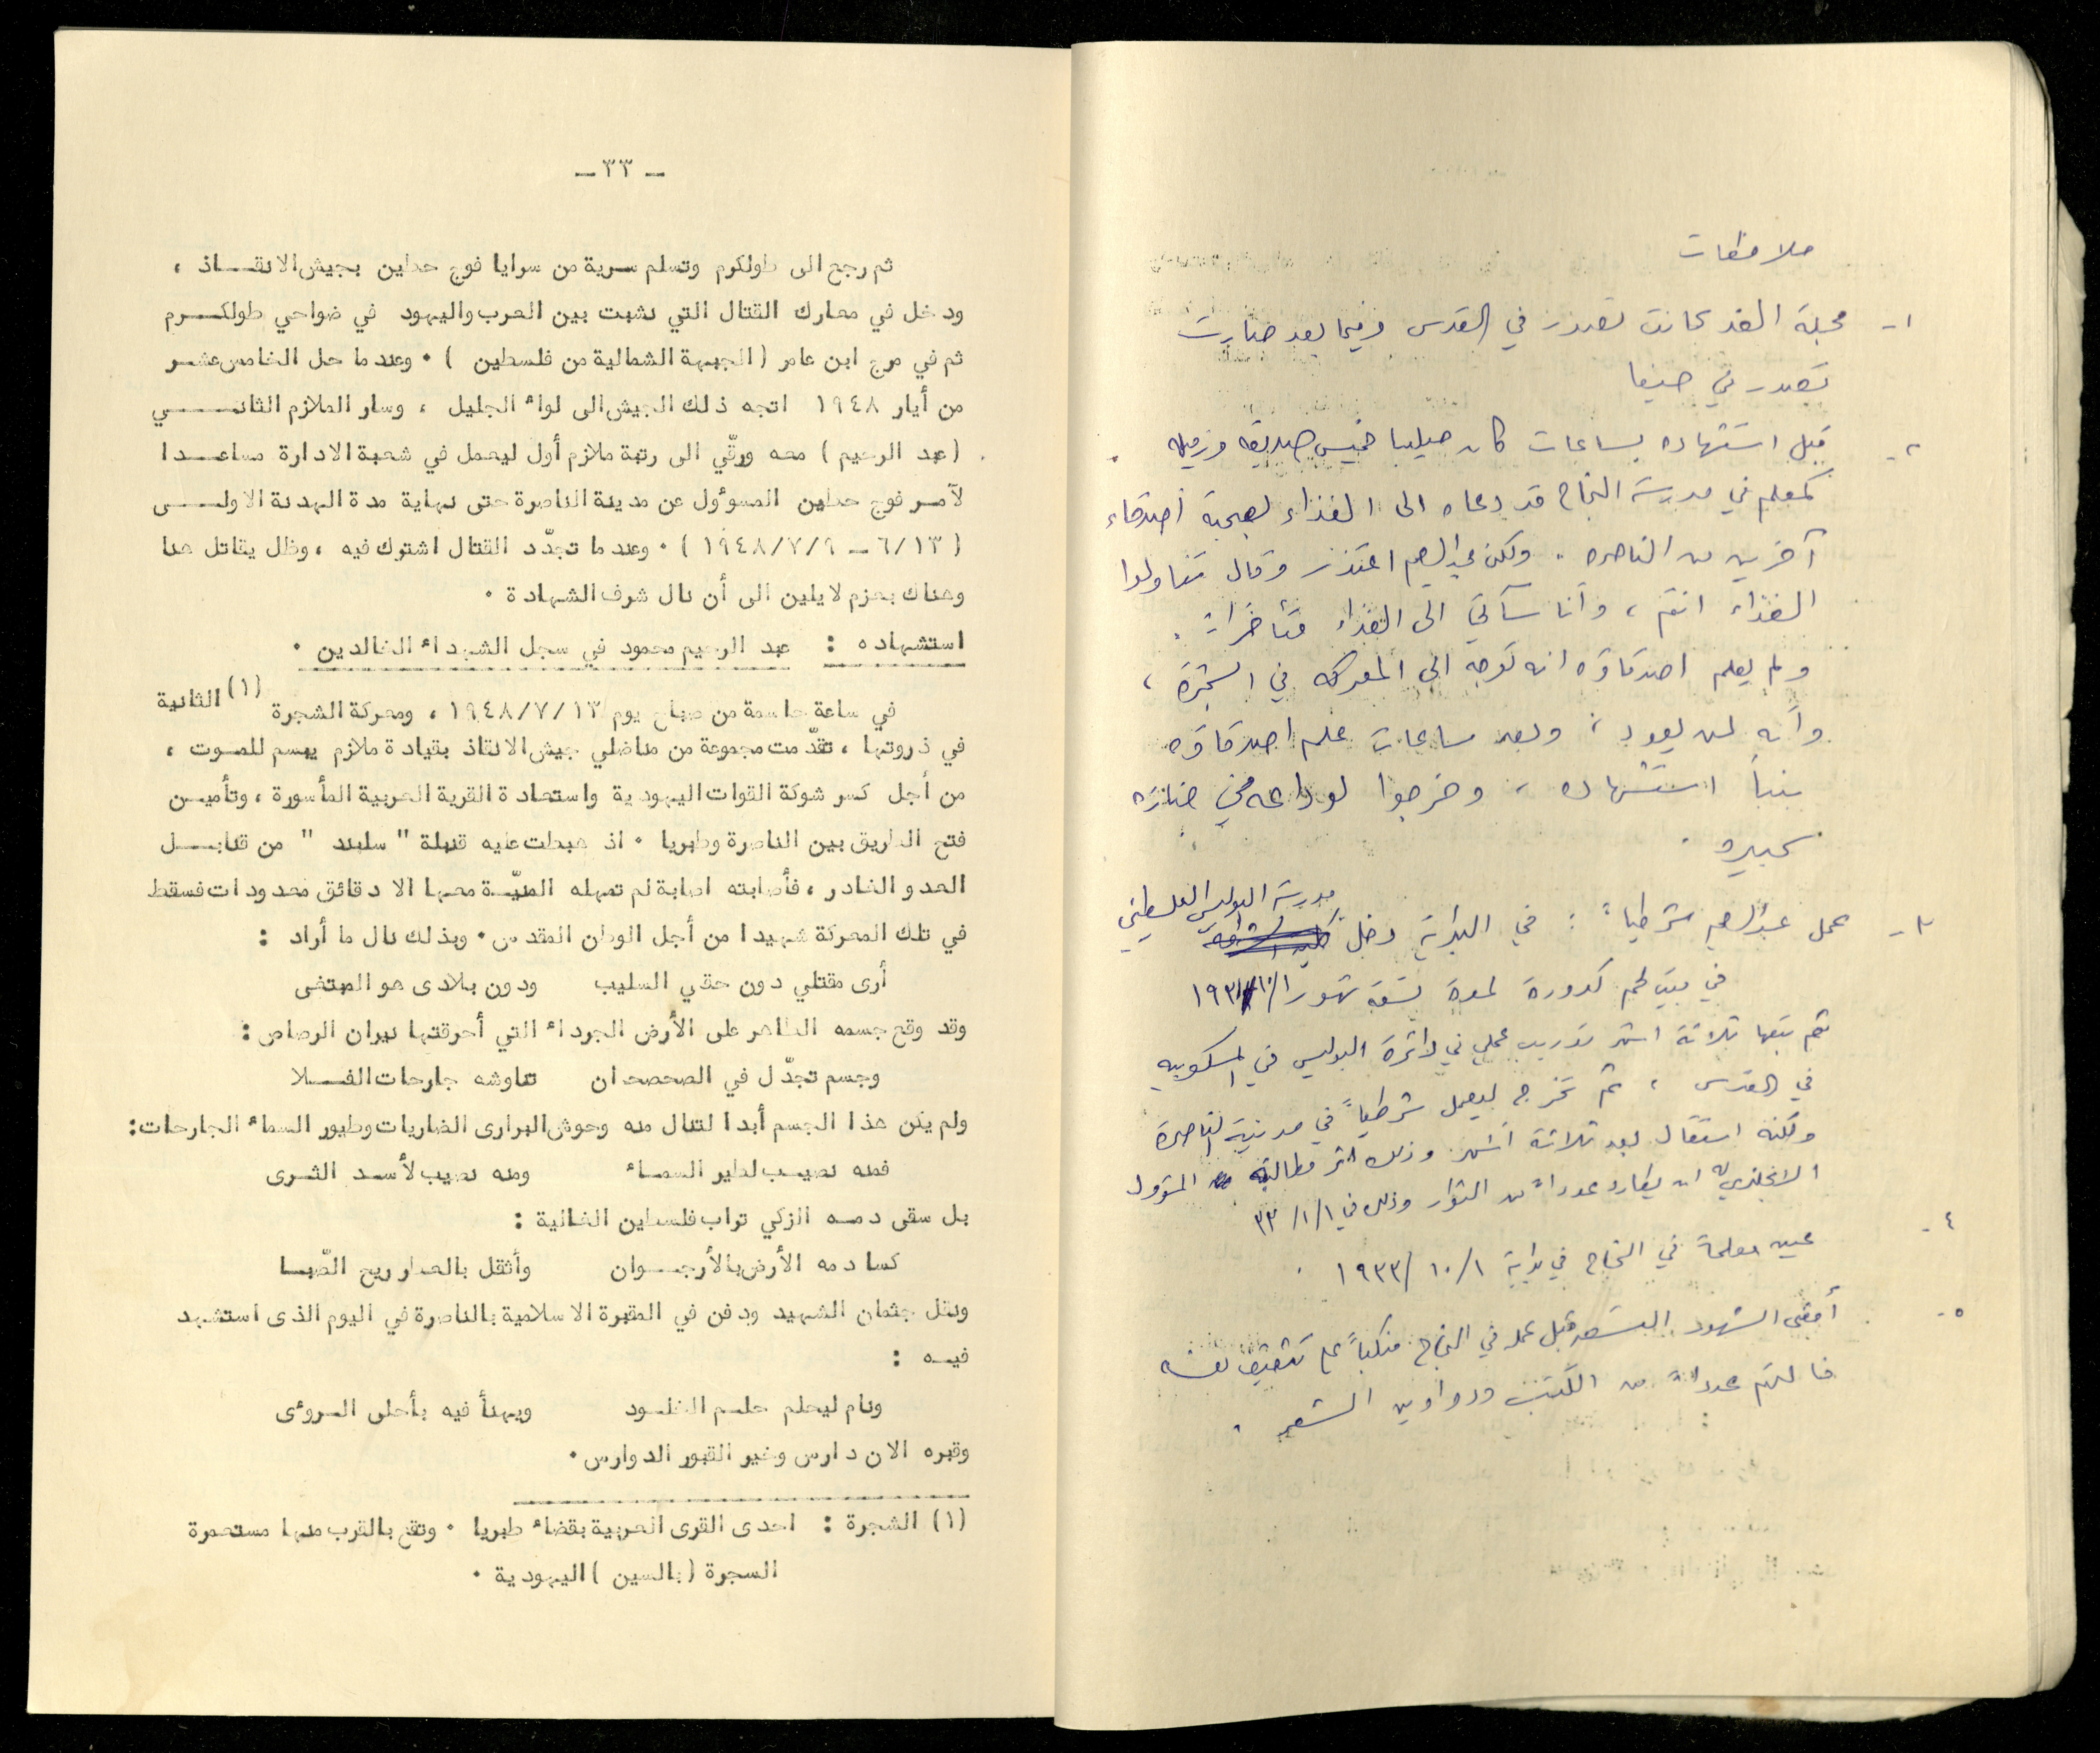 ملاحظات
١- مجلة الغد كانت تصدر في القدس وفيما بعد صارت
تصدر في حيفا
٢- قبل استشهاده بساعات كان ميليا خميس صديقه وزميله
كمعلم في مدرسة النجاح قد دعاه الى الغذاء لصحبة أصدقاء
آخرين من الناصره . ولكن عبدالرحيم اعتذر وقال تناولوا
الغذاء انتم ، وأنا سآتي الى الغذاء متأخراً .
ولم يعلم اصدقاؤه انه توجه الى المعركه في الشجرة ،
وأنه لن يعود ، وبعد ساعات علم اصدقاؤه
بنبأ استشهاده ، وخرجوا لوداعه في جنازه
كبيره .
٣- عمل عبدالرحيم شرطياً : في البداية دخل مدرسة البوليس الفلسطيني
في بيت لحم كدورة لمدة تسعة شهور
ثم تبعها ثلاثة اشهر تدريب عملي في دائرة البوليس في المسكوبيه
في القدس ، ثم تخرج ليعمل شرطياً في مدينة الناصرة
ولكنه استقال بعد ثلاثة أشهر وذلك اثر مطالبة المسؤول
الانجليزي له ان يطارد عدداً من الثوار وذلك في ١/١/٣٣
٤- عين معلماً في النجاح في بداية ١٩٣٣/١٠/١ .
٥- أمضى الشهور التسعة قبل عمله في النجاح منكباً على تثقيف نفسه
فالتهم عدداً من الكتب ودواوين الشعر .
ـ ٣٣ ـ
ثم رجع الى طولكرم وتسلم سرية من سرايا فوج حطين بجيش الانقـــاذ ،
ودخل في معارك القتال التي نشبت بين العرب واليهود في ضواحي طولكــرم
ثم في مرج ابن عامر ( الجبهة الشمالية من فلسطين ) ٠ وعندما حل الخامس عشــر
من أيار ١٩٤٨ اتجه ذلك الجيش الى لواء الجليل ، وسار الملازم الثانـــــي
( عبد الرحيم ) معه ورقّي الى رتبة ملازم أول ليعمل في شعبة الادارة مساعــدا
لآمــر فوج حطين المسؤول عن مدينة الناصرة حتى نهاية مدة الهدنة الاولــــى
( ٦/١٣ ــ ١٩٤٨/٧/٩ ) ٠ وعندما تجدّد القتال اشترك فيه ، وظل يقاتل هنا
وهناك بعزم لا يلين الى أن نال شرف الشهادة ٠
استشهاده : عبد الرحيم محمود في سجل الشهداء الخالدين ٠
في ساعة حاسمة من صباح يوم ١٩٤٨/٧/١٣ ، ومعركة الشجرة (١) الثانية
في ذروتها ، تقدّمت مجموعة من مناضلي جيش الانقاذ بقيادة ملازم يبسم للمــوت ،
من أجل كسر شوكة القوات اليهودية واستعادة القرية العربية المأسورة ، وتأميــن
فتح الطريق بين الناصرة وطبريا ٠ اذ هبطت عليه قنبلة " سلبند " من قنابــــل
العدو الغادر ، فأصابته اصابة لم تمهله المنيّــة معها الا دقائق معدودات فسقط
في تلك المعركة شهيدا من أجل الوطن المقدس ٠ وبذلك نال ما أراد :
أرى مقتلي دون حقي السليب ودون بلادى هو المبتغى
وقد وقع جسمه الطاهر على الأرض الجرداء التي أحرقتها نيران الرصاص :
وجسم تجدّل في الصحصحان تناوشه جارحات الفــلا
ولم يكن هذا الجسم أبدا لتنال منه وحوش البرارى الضاريات وطيور السماء الجارحات :
فمنه نصيــب لطير السمــاء ومنه نصيب لأســد الشــرى
بل سقى دمــه الزكي تراب فلسطين الغالية :
كسا دمه الأرض بالأرجـــوان وأثقل بالعطر ريح الصّبــا
ونقل جثمان الشهيد ودفن في المقبرة الاسلامية بالناصرة في اليوم الذى استشهد
فيــه :
ونام ليحلم حلــم الخلــود ويهنأ فيه بأحلى الــرؤى
وقبره الان دارس وخير القبور الدوارس ٠
(١) الشجرة : احدى القرى العربية بقضاء طبريا ٠ وتقع بالقرب منها مستعمرة
السجرة ( بالسين ) اليهودية ٠